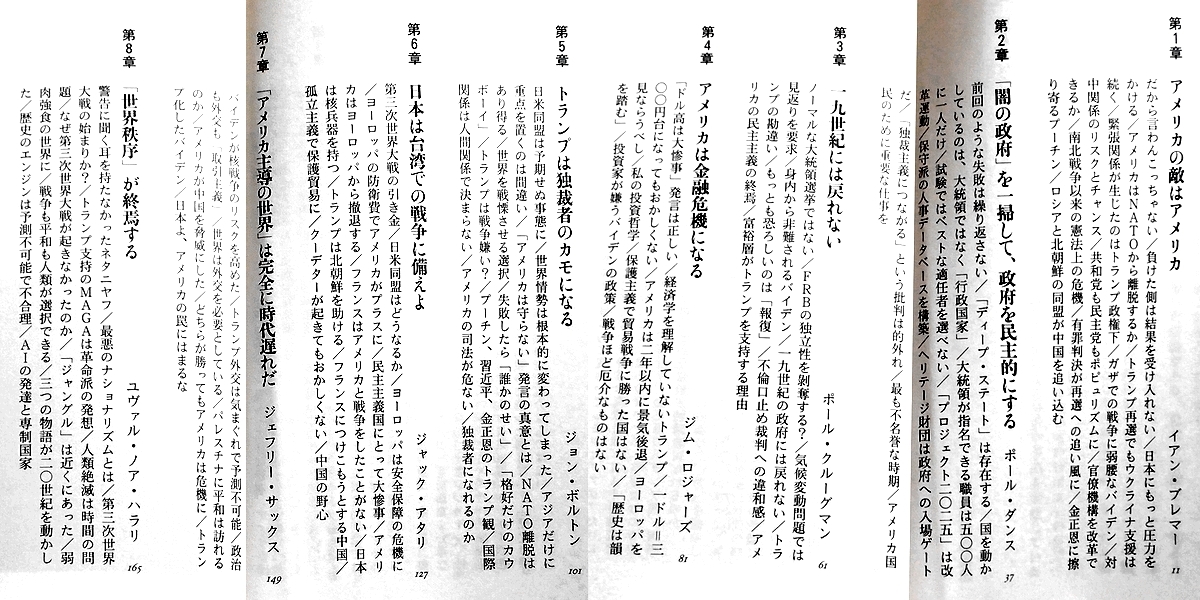 第1章 アメリカの敵はアメリカ イアン・ブレマー 11
だから言わんこっちゃない／負けた側は結果を受け入れない／日本にもっと圧力を
かける／アメリカはNATOから離脱するか／トランプ再選でもウクライナ支援は
続く／緊張関係が生じたのはトランプ政権下／ガザでの戦争に弱腰なバイデン／対
中関係のリスクとチャンス／共和党も民主党もポピュリズムに／官僚機構を改革で
きるか／南北戦争以来の憲法上の危機／有罪判決が再選への追い風に／金正恩に擦
り寄るプーチン／ロシアと北朝鮮の同盟が中国を追い込む
第2章 「闇の政府」を一掃して、政府を民主的にする ポール・ダンス 37
前回のような失敗は繰り返さない／「ディープ・ステート」は存在する／国を動か
しているのは、大統領ではなく「行政国家」／大統領が指名できる職員は五〇〇人
に一人だけ／試験ではベストな適任者を選べない／「プロジェクト二〇二五」は改
革運動／保守派の人事データベースを構築／ヘリテージ財団は政府への入場ゲート
だ／「独裁主義につながる」という批判は的外れ／最も不名誉な時期／アメリカ国
民のために重要な仕事を
第3章 一九世紀には戻れない ポール・クルーグマン 61
ノーマルな大統領選挙ではない／FRBの独立性を剝奪する？／気候変動問題では
見返りを要求／身内から非難されるバイデン／一九世紀の政府には戻れない／トラ
ンプの勘違い／もっとも恐ろしいのは「報復」／不倫口止め裁判への違和感／アメ
リカの民主主義の終焉／富裕層がトランプを支持する理由
第4章 アメリカは金融危機になる ジム・ロジャーズ 81
「ドル高は大惨事」発言は正しい／経済学を理解していないトランプ／一ドル＝三
〇〇円台になってもおかしくない／アメリカは二年以内に景気後退／ヨーロッパを
見ならうべし／私の投資哲学／保護主義で貿易戦争に勝った国はない／「歴史は韻
を踏む」／投資家が嫌うバイデンの政策／戦争ほど厄介なものはない
第5章 トランプは独裁者のカモになる ジョン・ボルトン 101
日米同盟は予期せぬ事態に／世界情勢は根本的に変わってしまった／アジアだけに
重点を置くのは間違い／「アメリカは守らない」発言の真意とは／NATO離脱は
あり得る／世界を戦慄させる選択／失敗したら「誰かのせい」／「格好だけのカウ
ボーイ」／トランプは戦争嫌い？／プーチン、習近平、金正恩のトランプ観／国際
関係は人間関係で決まらない／アメリカの司法が危ない／独裁者になれるのか
第6章 日本は台湾での戦争に備えよ ジャック・アタリ 127
第三次世界大戦の引き金／日米同盟はどうなるか／ヨーロッパは安全保障の危機に
／ヨーロッパの防衛費でアメリカがプラスに／民主主義国にとって大惨事／アメリ
カはヨーロッパから撤退する／フランスはアメリカと戦争をしたことがない／日本
は核兵器を持つ／トランプは北朝鮮を助ける／フランスにつけこもうとする中国／
孤立主義で保護貿易に／クーデターが起きてもおかしくない／中国の野心
第7章 「アメリカ主導の世界」は完全に時代遅れだ ジェフリー・サックス 149
バイデンが核戦争のリスクを高めた／トランプ外交は気まぐれで予測不可能／政治
も外交も「取引主義」／世界は外交を必要としている／パレスチナに平和は訪れる
のか／アメリカが中国を脅威にした／どちらが勝ってもアメリカは危機に／トラン
プ化したバイデン／日本よ、アメリカの罠にはまるな
第8章 「世界秩序」が終焉する ユヴァル・ノア・ハラリ 165
警告に聞く耳を持たなかったネタニヤフ／最悪のナショナリズムとは／第三次世界
大戦の始まりか？／トランプ支持のMAGAは革命派の発想／人類絶滅は時間の問
題／なぜ第三次世界大戦が起きなかったのか／「ジャングル」は近くにあった／弱
肉強食の世界に／戦争も平和も人類が選択できる／三つの物語が二〇世紀を動かし
た／歴史のエンジンは予測不可能で不合理／AIの発達と専制国家